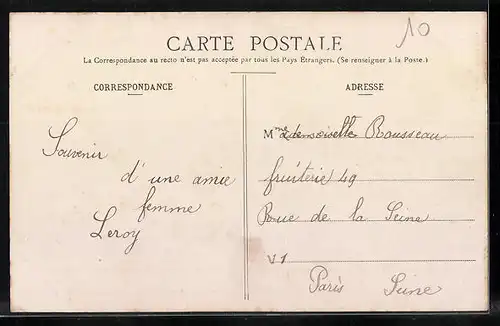 10
CARTE POSTALE
La Correspondance au recto n'est pas acceptée par tous les Pays Étrangers. (Se renseigner à la Poste.)
CORRESPONDANCE
Souvenir
d'une amie
femme
Leroy
ADRESSE
Mme Rousseau
fruiterie 49
Rue de la Seine
Paris Seine